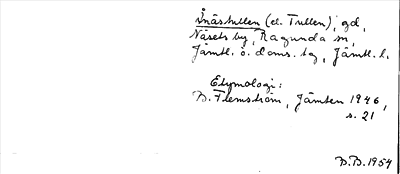 Ånästullen (el. Tullen), gd,
Näsets by, Ragunda sn,
Jämtl. ö. doms. tg, Jämtl. l.
Etymologi:
B. Flemström, Jämten 1946,
s. 21
B.B. 1954